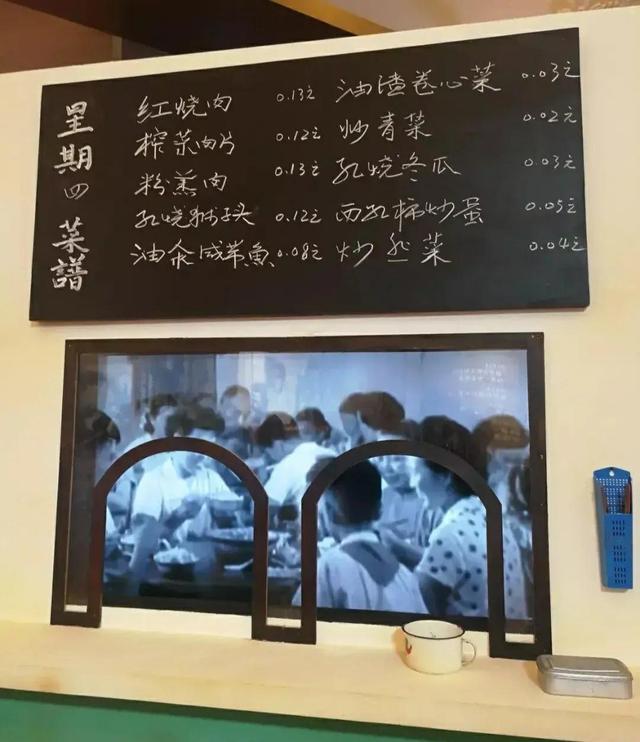 星期四菜譜
红烧肉 0.13元
榨菜肉片 0.12元
粉蒸肉 0.13元
红烧狮子头 0.12元
油氽咸带魚 0.08元
油渣卷心菜 0.03元
炒青菜 0.02元
红烧冬瓜 0.03元
西红柿炒蛋 0.05元
炒韭菜 0.04元